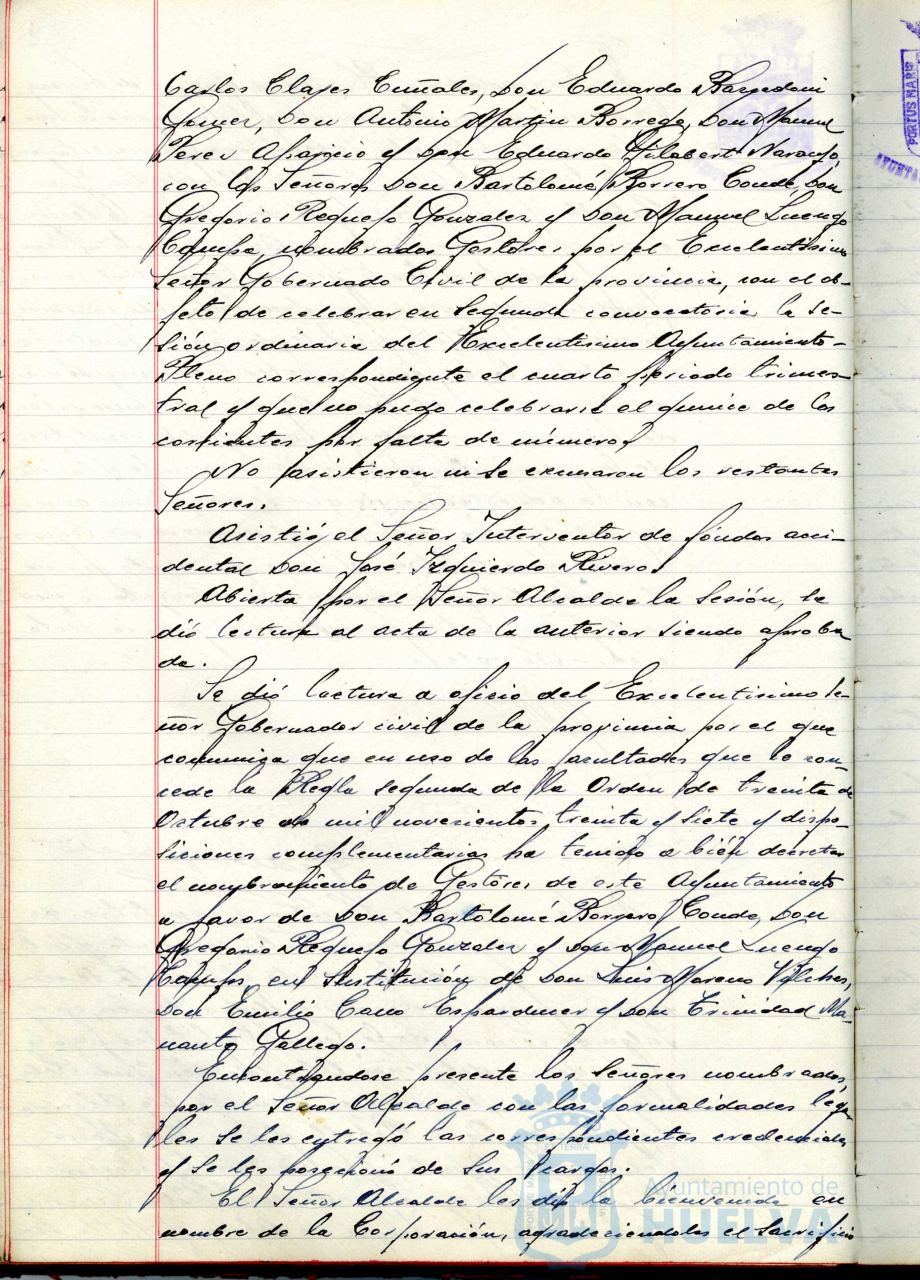 Carlos Clajes Cuñales, Don Eduardo Barredoni
Gomez, Don Antonio Martin Borrego, Don Manuel
Perez Aparicio y Don Eduardo Gilabert Naranjo,
con los Señores Don Bartolomé Borrero Conde, Don
Gregorio Requejo Gonzalez y Don Manuel Luengo
nombrados Gestores por el Excelentisimo
Señor Gobernado Civil de la provincia, con el ob-
jeto de celebrar en segunda convocatoria la Se-
sión ordinaria del Excelentisimo Ayuntamiento-
Pleno correspondiente el cuarto periodo trimes-
tral y que no pudo celebrarse el quince de los
corrientes por falta de número.
No asistieron ni se excusaron los restantes
Señores.
Asistió el Señor Interventor de fondos acci-
dental Don José Izquierdo Rivero.
Abierta por el Señor Alcalde la Sesión, se
dió lectura al acta de la anterior siendo aproba
da.
Se dió lectura a oficio del Excelentisimo Se-
ñor Gobernador civil de la provincia por el que
comunica que en uso de las facultades que le con-
cede la Regla segunda de la Orden de treinta de
Octubre de mil novecientos treinta y siete y dispo-
siciones complementarias ha tenido a bién decretar
el nombramiento de Gestores de este Ayuntamiento
a favor de Don Bartolomé Borrero Conde, Don
Gregorio Requejo Gonzalez y Don Manuel Luengo
en sustitución de Don Luis Moreno Vilches,
Don Emilio Cano Esparducer y Don Trinidad Ma-
nanto Gallego.
Encontrandose presente los Señores nombrados,
por el Señor Alcalde con las formalidades lega-
les se les entregó las correspondientes credenciales
y se les posecionó de sus cargos.
El Señor Alcalde les dió la bienvenida en
nombre de la Corporación, agradeciendoles el sacrificio
PORTUS MARIS
AYUNTA
Ayuntamiento de
HUELVA